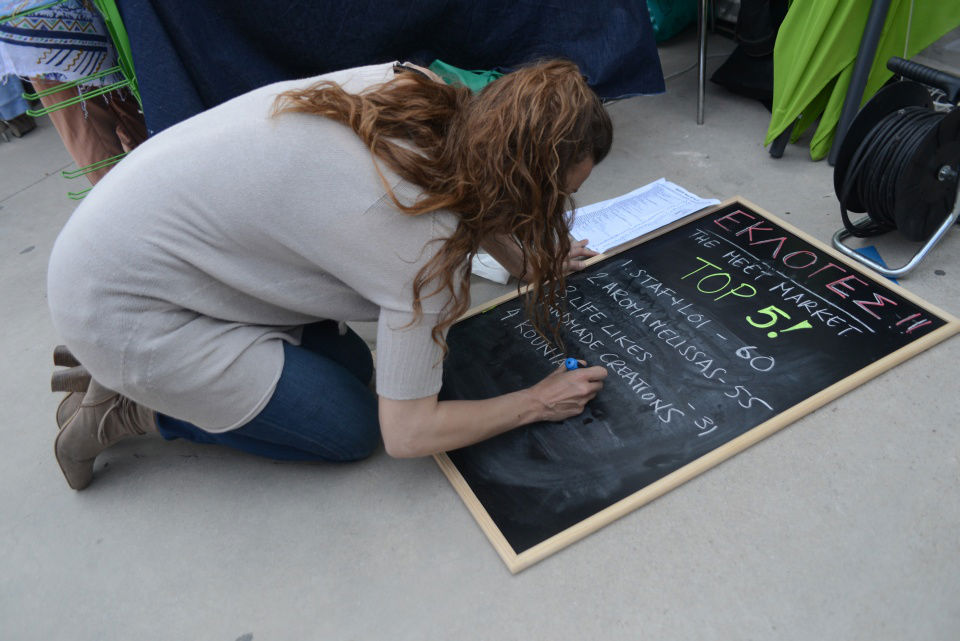 ΕΚΛΟΓΕΣ !!!
THE MEET MARKET
TOP 5!
1 STAFYLOI - 60
2 AROMA MELISSAS - 55
3 LIFE LIKES
HANDMADE CREATIONS - 31
4